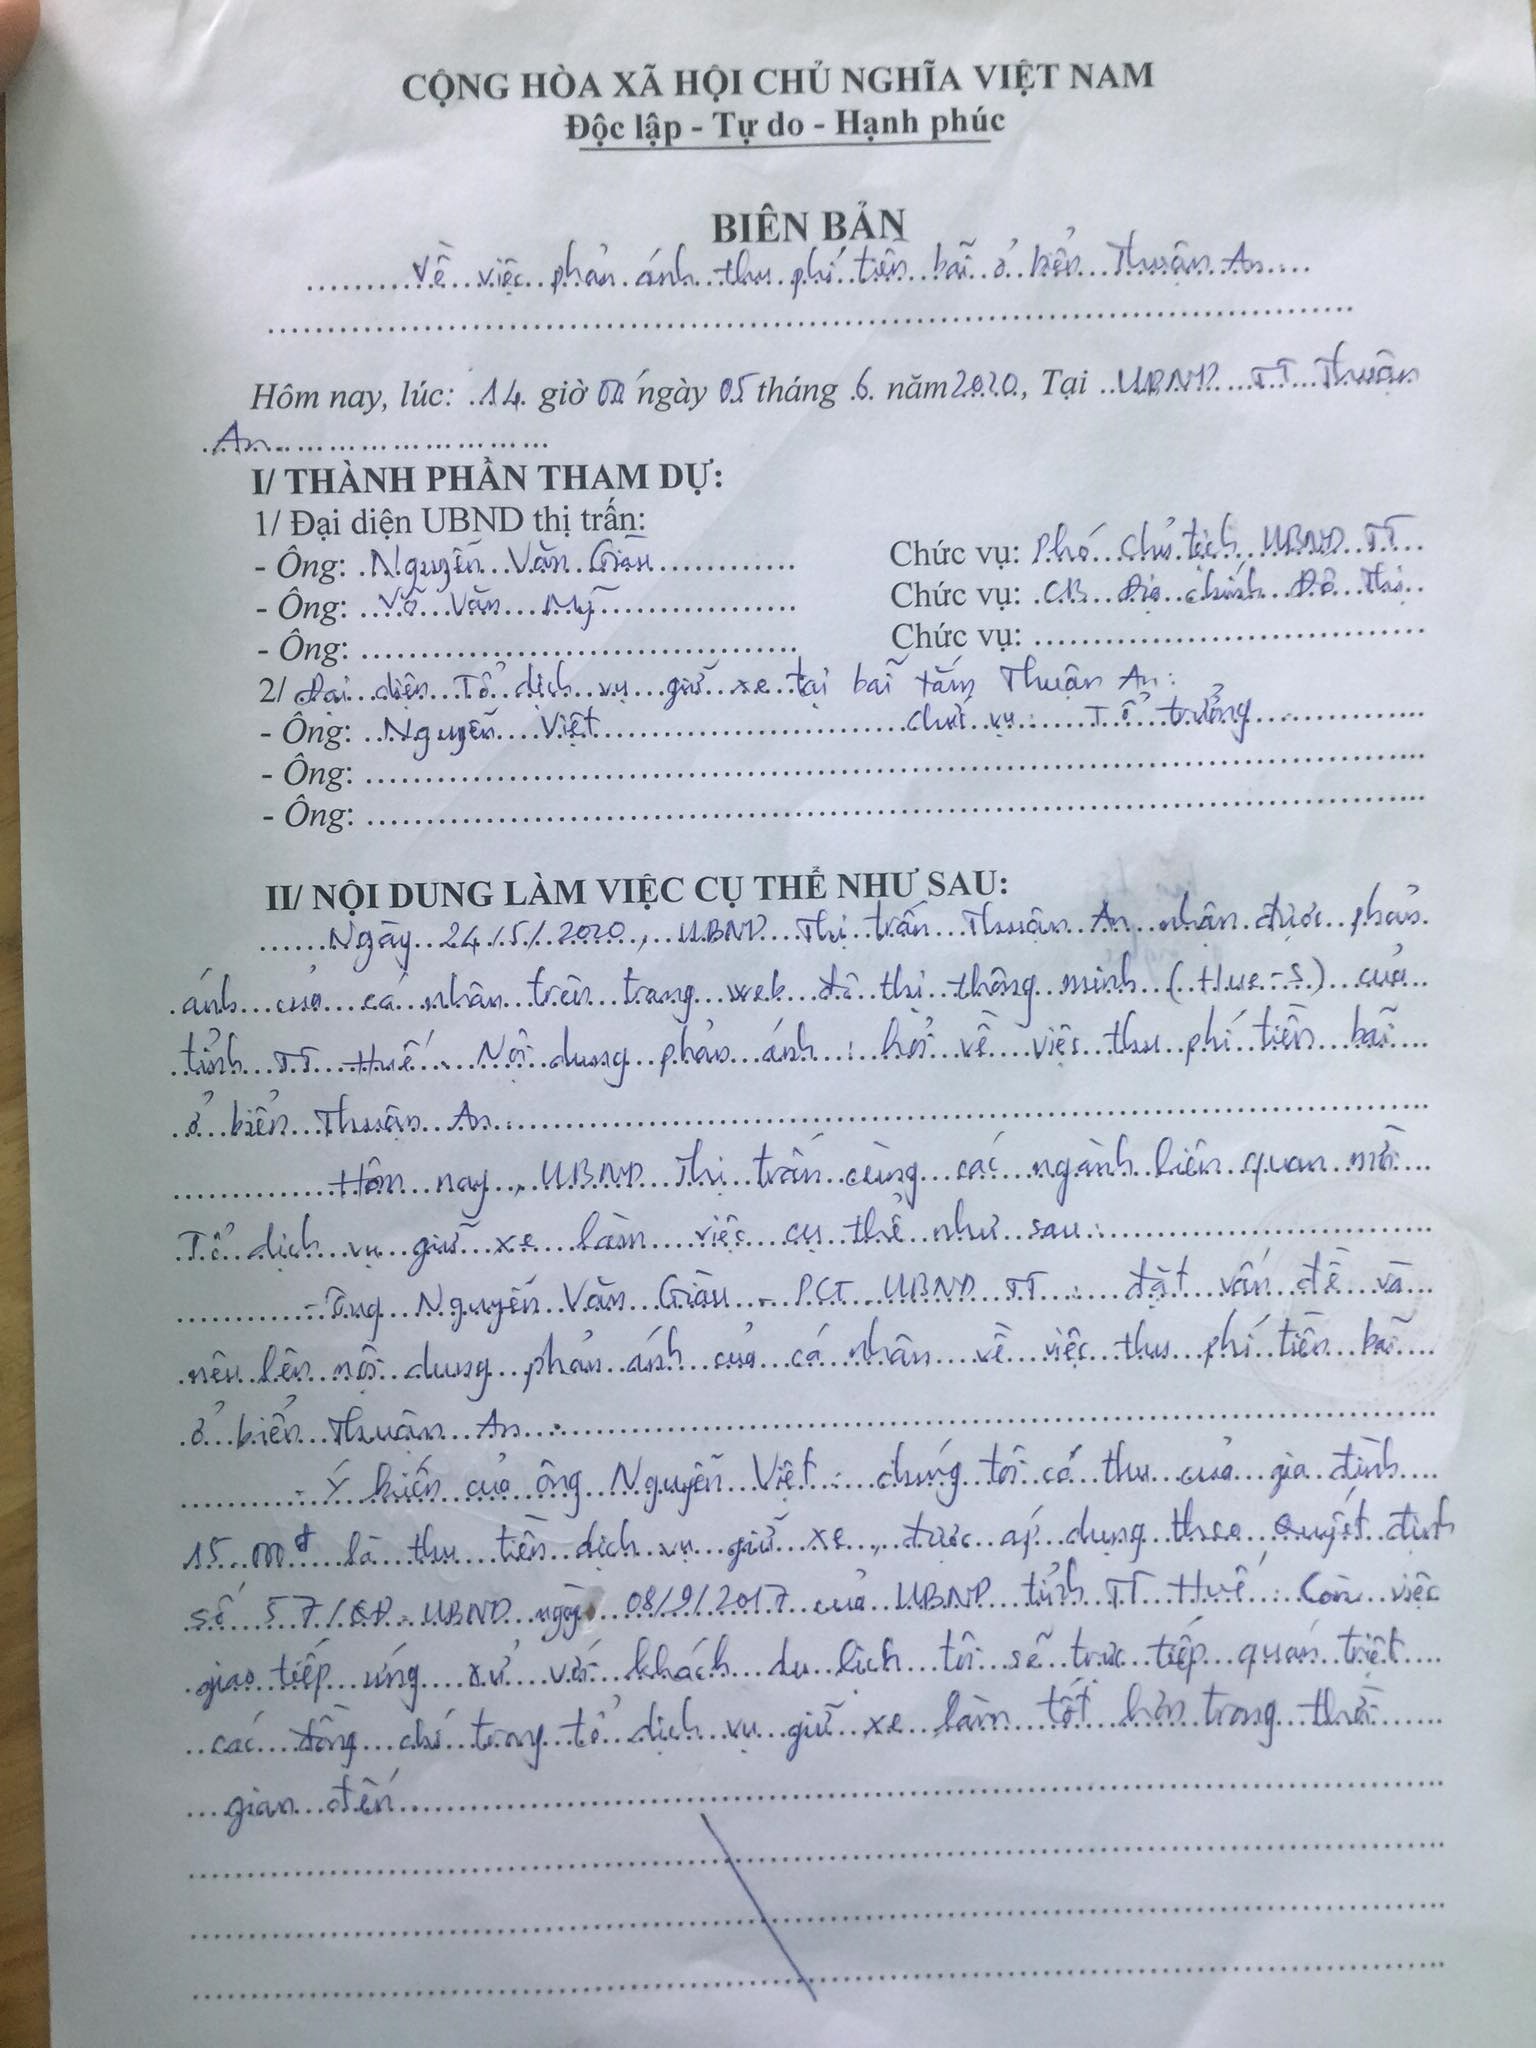 CỘNG HÒA XÃ HỘI CHỦ NGHĨA VIỆT NAM
Độc lập - Tự do - Hạnh phúc
BIÊN BẢN
Về việc phản ánh thu phí tiền bãi ở biển Thuận An
Hôm nay, lúc: 14 giờ 00 ngày 05 tháng 6 năm 2020, Tại UBND TT Thuận
An
I/ THÀNH PHẦN THAM DỰ:
1/ Đại diện UBND thị trấn:
- Ông: Nguyễn Văn Giàu Chức vụ: Phó Chủ tịch UBND TT
- Ông: Võ Văn Mỹ Chức vụ: CB Địa chính Đô thị
- Ông: Chức vụ:
2/ Đại diện Tổ dịch vụ giữ xe tại bãi tắm Thuận An:
- Ông: Nguyễn Việt chức vụ: Tổ trưởng
- Ông:
- Ông:
II/ NỘI DUNG LÀM VIỆC CỤ THỂ NHƯ SAU:
Ngày 24/5/2020, UBND Thị trấn Thuận An nhận được phản
ánh của cá nhân trên trang web đô thị thông minh (Hue-S) của
tỉnh TT Huế. Nội dung phản ánh: hỏi về việc thu phí tiền bãi
ở biển Thuận An
Hôm nay, UBND Thị trấn cùng các ngành liên quan mời
Tổ dịch vụ giữ xe làm việc cụ thể như sau:
- Ông Nguyễn Văn Giàu - PCT UBND TT: đặt vấn đề và
nêu lên nội dung phản ánh của cá nhân về việc thu phí tiền bãi
ở biển Thuận An.
- Ý kiến của ông Nguyễn Việt: chúng tôi có thu của gia đình
15.000đ là thu tiền dịch vụ giữ xe, được áp dụng theo Quyết định
số 57/QĐ-UBND ngày 08/9/2017 của UBND tỉnh TT Huế. Còn việc
giao tiếp ứng xử với khách du lịch tôi sẽ trực tiếp quán triệt
các đồng chí trong tổ dịch vụ giữ xe làm tốt hơn trong thời
gian đến